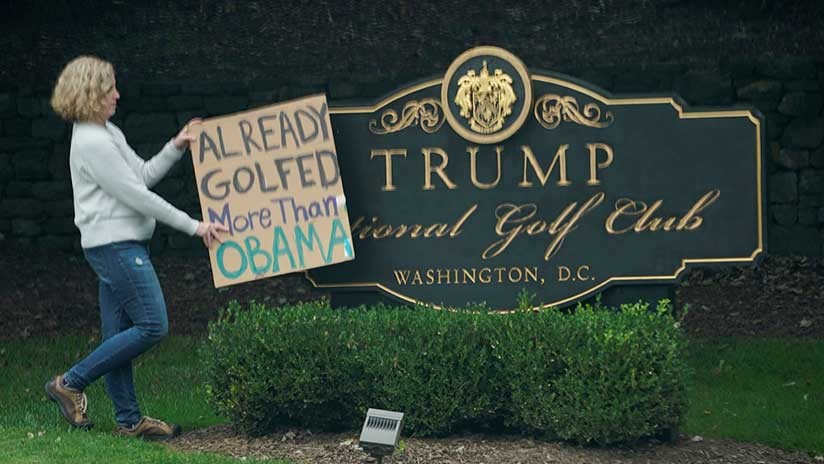 ALREADY
GOLFED
More Than
OBAMA
TRUMP
tional Golf Club
WASHINGTON, D.C.